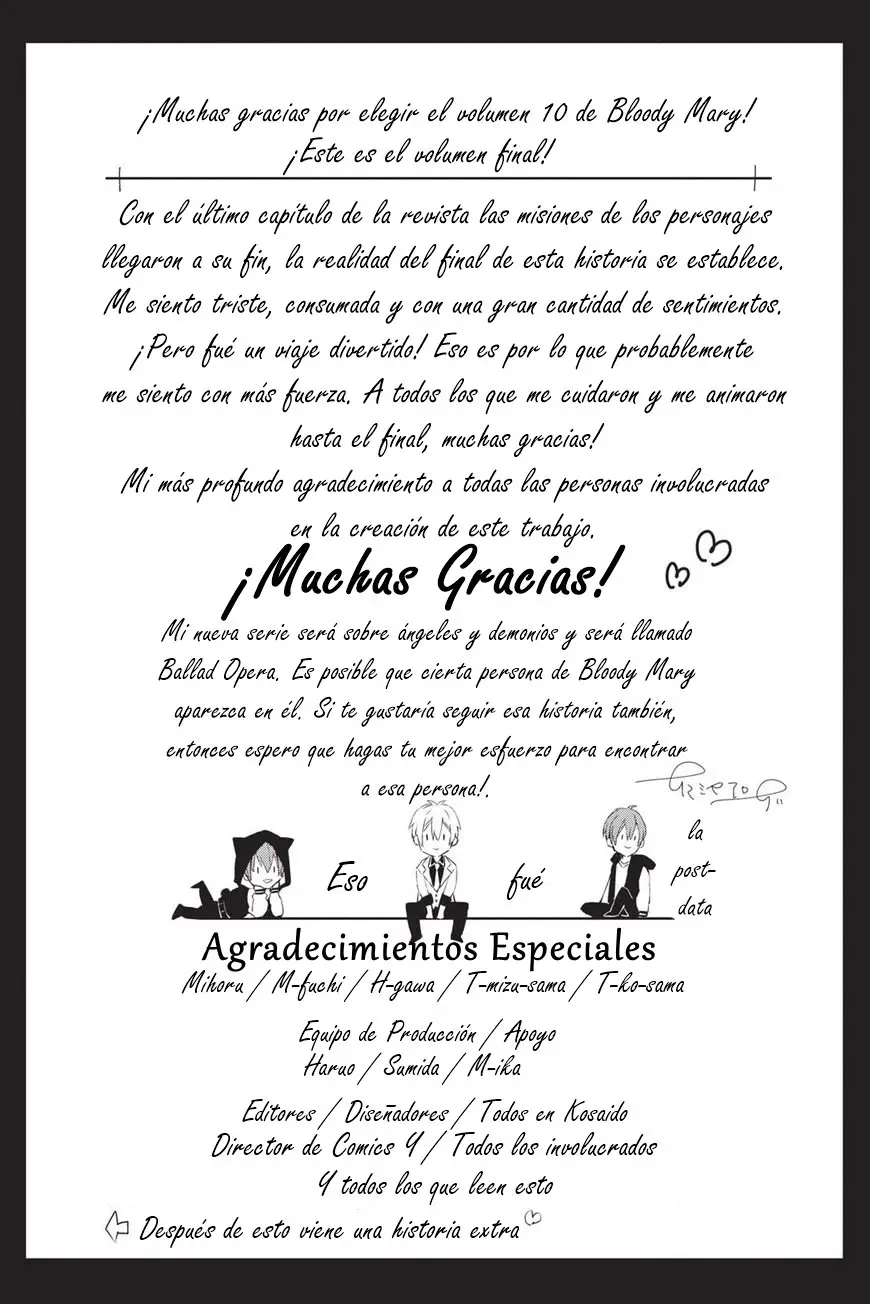 ¡Muchas gracias por elegir el volumen 10 de Bloody Mary!
¡Este es el volumen final!
Con el último capítulo de la revista las misiones de los personajes
llegaron a su fin, la realidad del final de esta historia se establece.
Me siento triste, consumada y con una gran cantidad de sentimientos.
¡Pero fué un viaje divertido! Eso es por lo que probablemente
me siento con más fuerza. A todos los que me cuidaron y me animaron
hasta el final, muchas gracias!
Mi más profundo agradecimiento a todas las personas involucradas
en la creación de este trabajo.
¡Muchas Gracias!
Mi nueva serie será sobre ángeles y demonios y será llamado
Ballad Opera. Es posible que cierta persona de Bloody Mary
aparezca en él. Si te gustaría seguir esa historia también,
entonces espero que hagas tu mejor esfuerzo para encontrar
a esa persona!.
Eso fué la
post-
data
Agradecimientos Especiales
Mihoru / M-fuchi / H-gawa / T-mizu-sama / T-ko-sama
Equipo de Producción / Apoyo
Haruo / Sumida / M-ika
Editores / Diseñadores / Todos en Kosaido
Director de Comics Y / Todos los involucrados
Y todos los que leen esto
Después de esto viene una historia extra